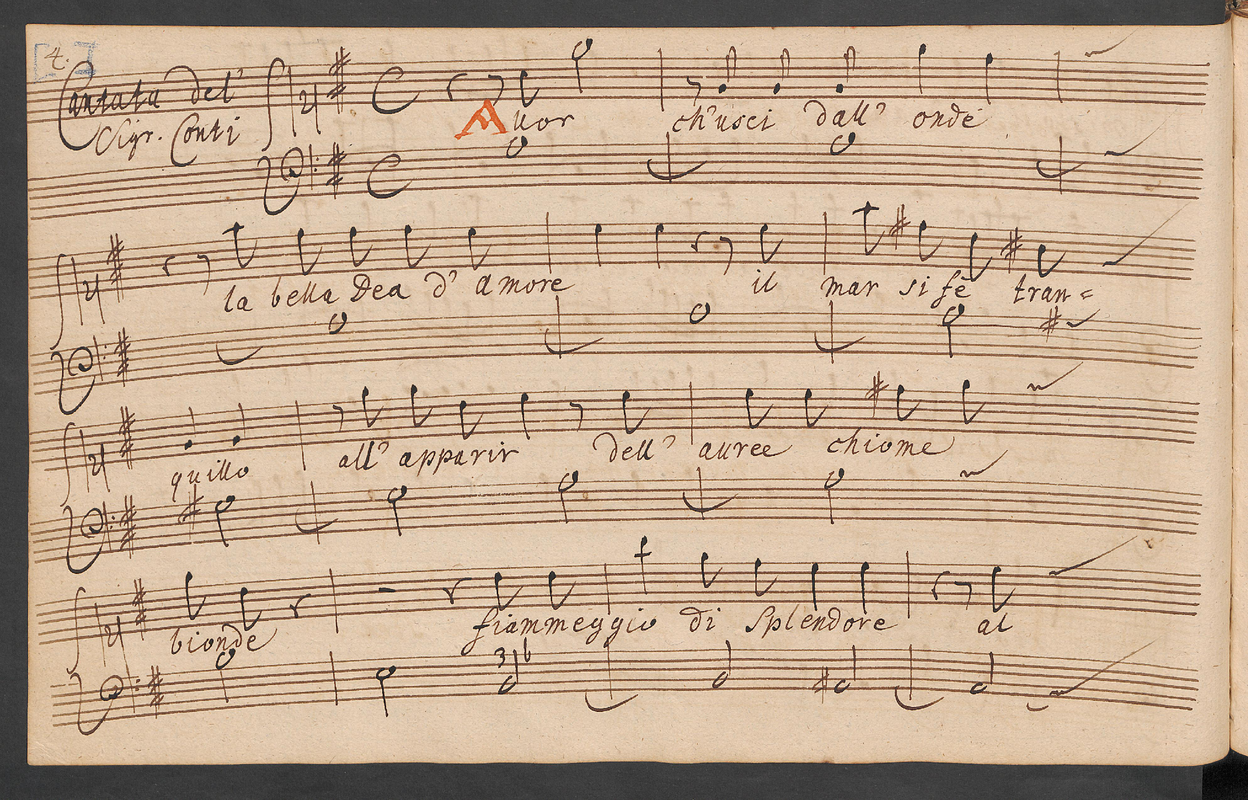 4.
Cantata del'
Sigr. Conti
Auor ch'usci dall' onde
la bella Dea d' amore il mar si fè tran=
quillo all' apparir dell' auree chiome
bionde fiammeggio di Splendore al
3 6